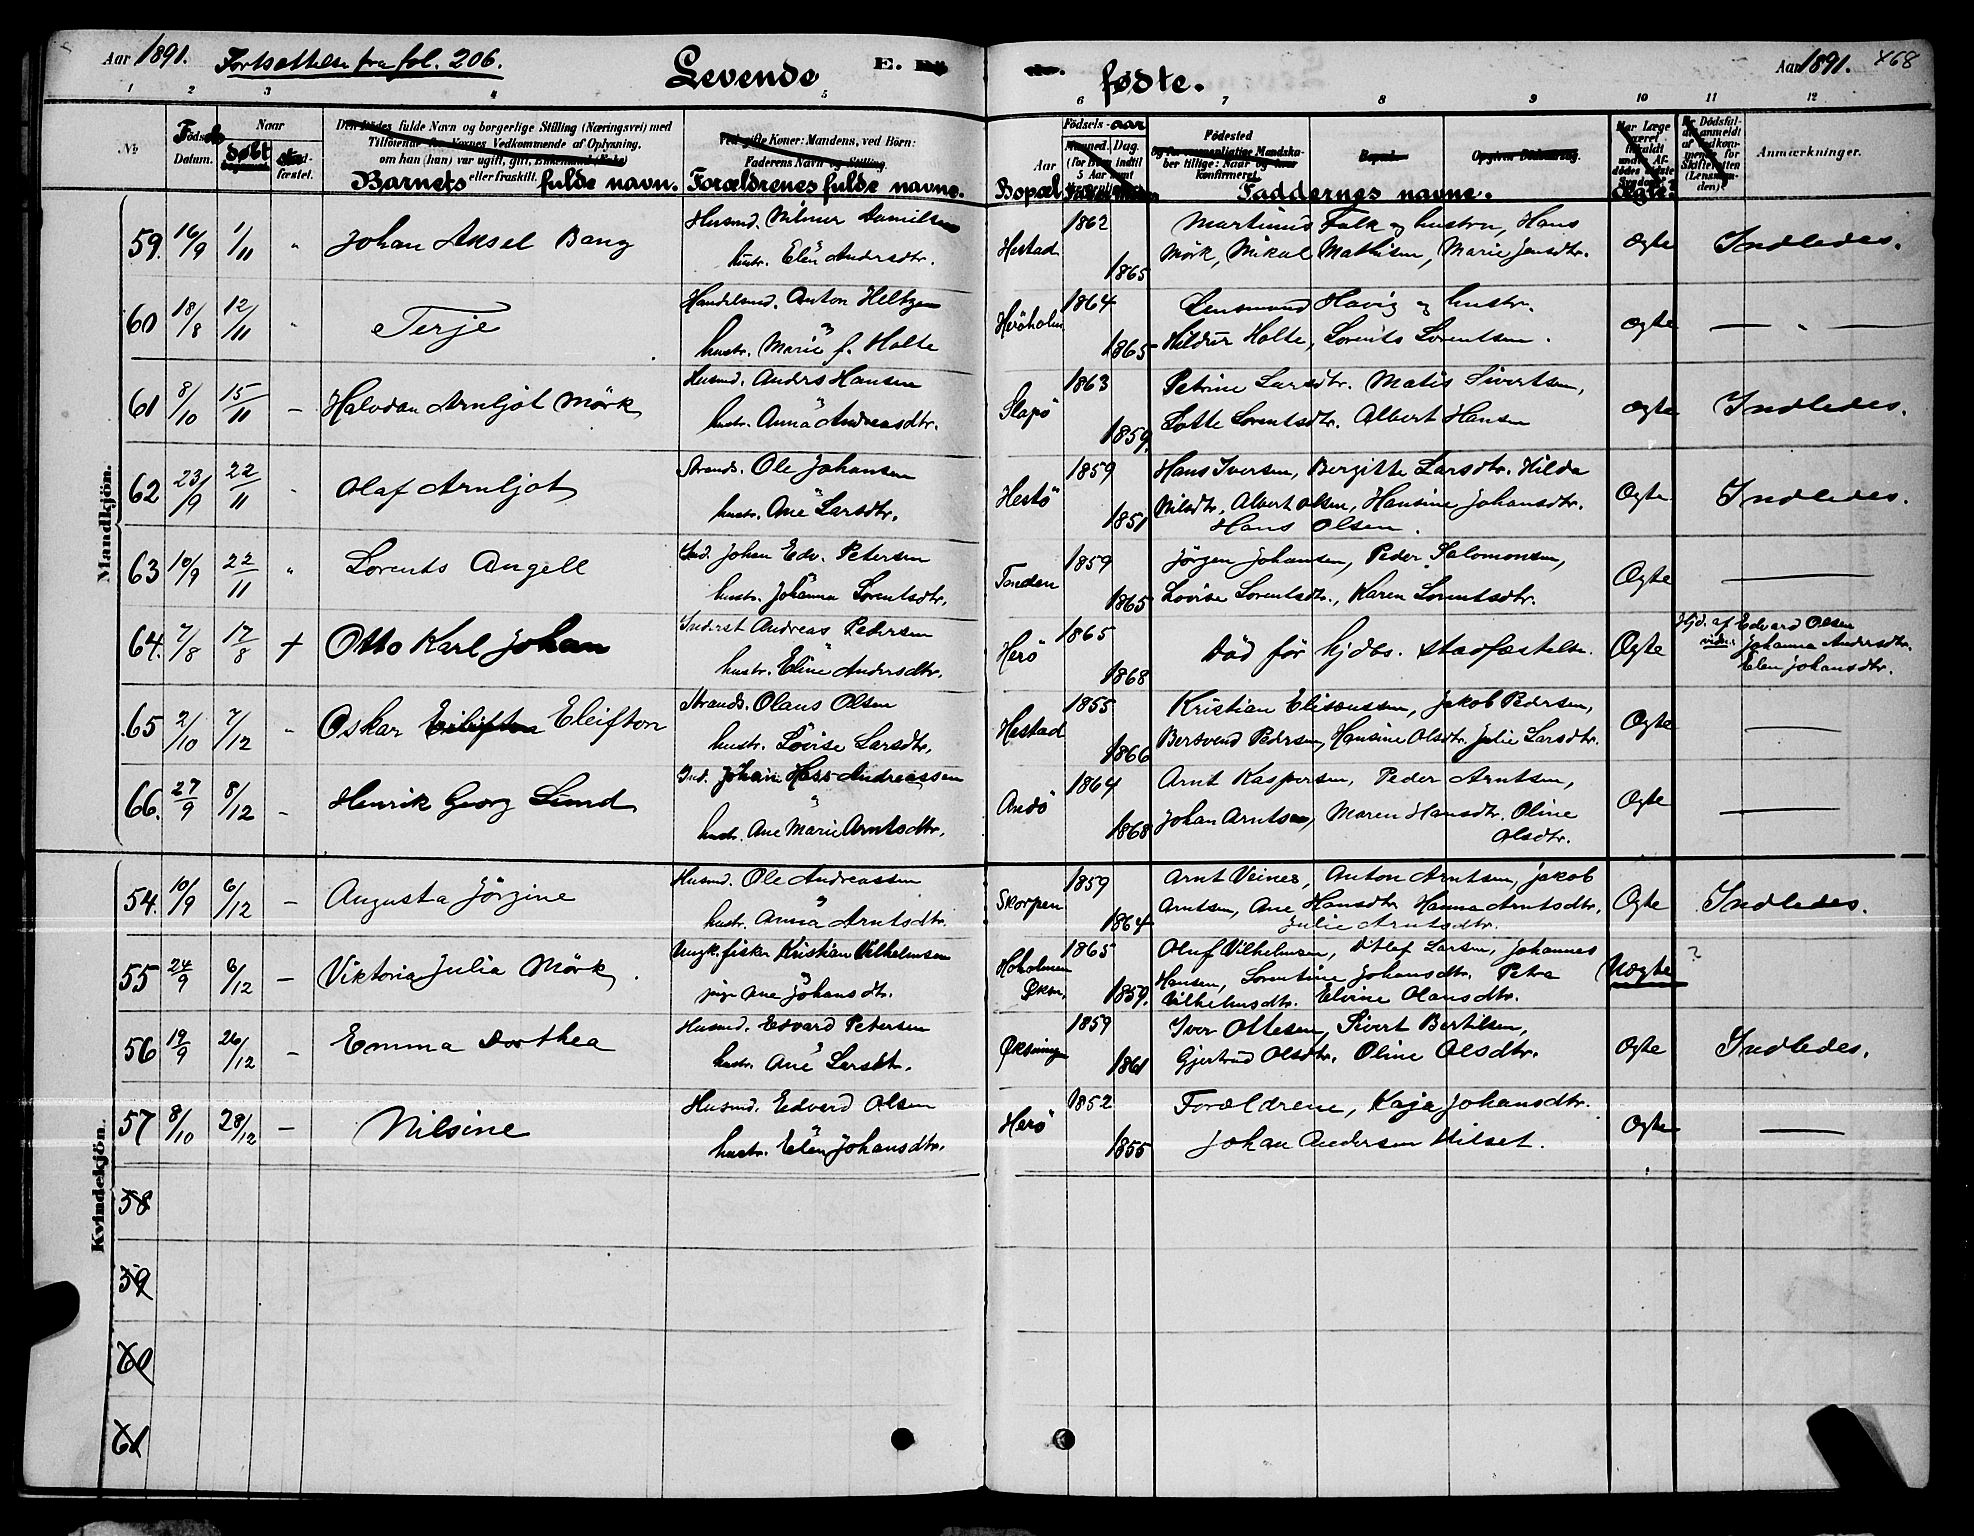 Aar 1891. Fortsættelse fra fol. 206. Levende E. fødte. Aar 1891. 468
1 2 3 4 5 6 7 8 9 10 11 12
No. Føds Datum. Naar døbt Stadfæstet. Barnets fulde navn. Forældrenes fulde navne. Bopæl Fødsels-aar Faddernes navne. Ægte Anmærkninger.
Mandkjön.
59. 16/9 1/11 " Johan Aksel Bang
Husmd. Nilmer Danielsen
hustr. Elen Andersdtr.
Hestad 1862 1865
Martinus Falk og hustru, Hans
Mörk, Mikal Mathisen, Marie Jensdtr.
Ægte Indledes.
60 18/8 12/11 " Terje
Handelsmd. Anton Heltzen
hustr. Marie f. Holte
Heröholm 1864 1865
Lensmand Havig og hustr.
Hildur Holte, Lorents Lorentsen.
Ægte — " —
61 8/10 15/11 — Halvdan Arnljot Mörk
Husmd. Anders Hansen
hustr. Anna Andreasdtr.
Slapö 1863 1859.
Petrine Larsdtr. Matis Sivertsen,
Lotte Lorentsdtr. Albert Hansen
Ægte Indledes.
62 23/9 22/11 " Olaf Arnljot
Strands. Ole Johansen
hustr. Ane Larsdtr.
Hestö 1859 1851
Hans Iversen, Bergitte Larsdtr. Hilda
Nilsdtr, Albert Olsen, Hansine Johansdtr.
Hans Olsen.
Ægte Indledes.
63 10/9 22/11 " Lorents Angell
Ind. Johan Edv. Petersen
hustr. Johanna Lorentsdtr.
Tenden 1859 1865
Jörgen Johansen, Peder Salomonsen,
Lovise Lorentsdtr., Karen Lorentsdtr.
Ægte —
64. 7/8 17/8 + Otto Karl Johan
Inderst Andreas Pedersen
hustr. Eline Andersdtr.
Herö 1865 1868
Död för hjdbs. stadfæstelse.
Ægte Hjd. af Edvard Olsen
vidn: Johanna Andersdtr.
Elen Johansdtr.
65 2/10 7/12 " Oskar Eleifton
Strands. Olaus Olsen
hustr. Lovise Larsdtr.
Hestad 1855 1866
Kristian Eliseussen, Jakob Pedersen,
Bertvend Pedersen, Hansine Olsdtr. Julie Larsdtr.
Ægte —
66. 27/9 8/12 — Henrik Georg Lund
Ind. Johan Hass Andreassen
hustr. Ane Marie Arntsdtr.
Andö 1864 1868
Arnt Kaspersen, Peder Arntsen,
Johan Arntsen, Maren Hansdtr. Oline
Olsdtr.
Ægte —
Kvindekjön.
54. 10/9 6/12 — Augusta Jörgine
Husmd. Ole Andreassen
hustr. Anna Arntsdtr.
Skorpen 1859 1864
Arnt Veines, Anton Arntsen, Jakob
Arntsen, Ane Hansdtr. Hanna Arntsdtr.
Julie Arntsdtr.
Ægte Indledes.
55 24/9 6/12 — Viktoria Julia Mörk.
Ungk. fisker Kristian Vilhelmsen
pige Ane Johansdtr.
Hoholmen 1865 1859.
Oluf Vilhelmsen, Ditlef Larsen, Johannes
Hansen, Lorentine Johansdtr. Petra
Vilhelmsdtr. Elvine Olausdtr.
Uægte ?
56 19/9 26/12 — Emma Dorthea
Husmd. Edvard Petersen
hustr. Ane Larsdtr.
Øksningen 1859 1861
Iver Ottesen, Sivert Bertilsen,
Gjertrud Olsdtr. Oline Olsdtr.
Ægte Indledes.
57 8/10 28/12 — Nilsine
Husmd. Edvard Olsen
hustr. Elen Johansdtr.
Herö 1852 1855
Forældrene, Kaja Johansdtr.
Johan Andersen Hilset.
Ægte —
58
59
60
61